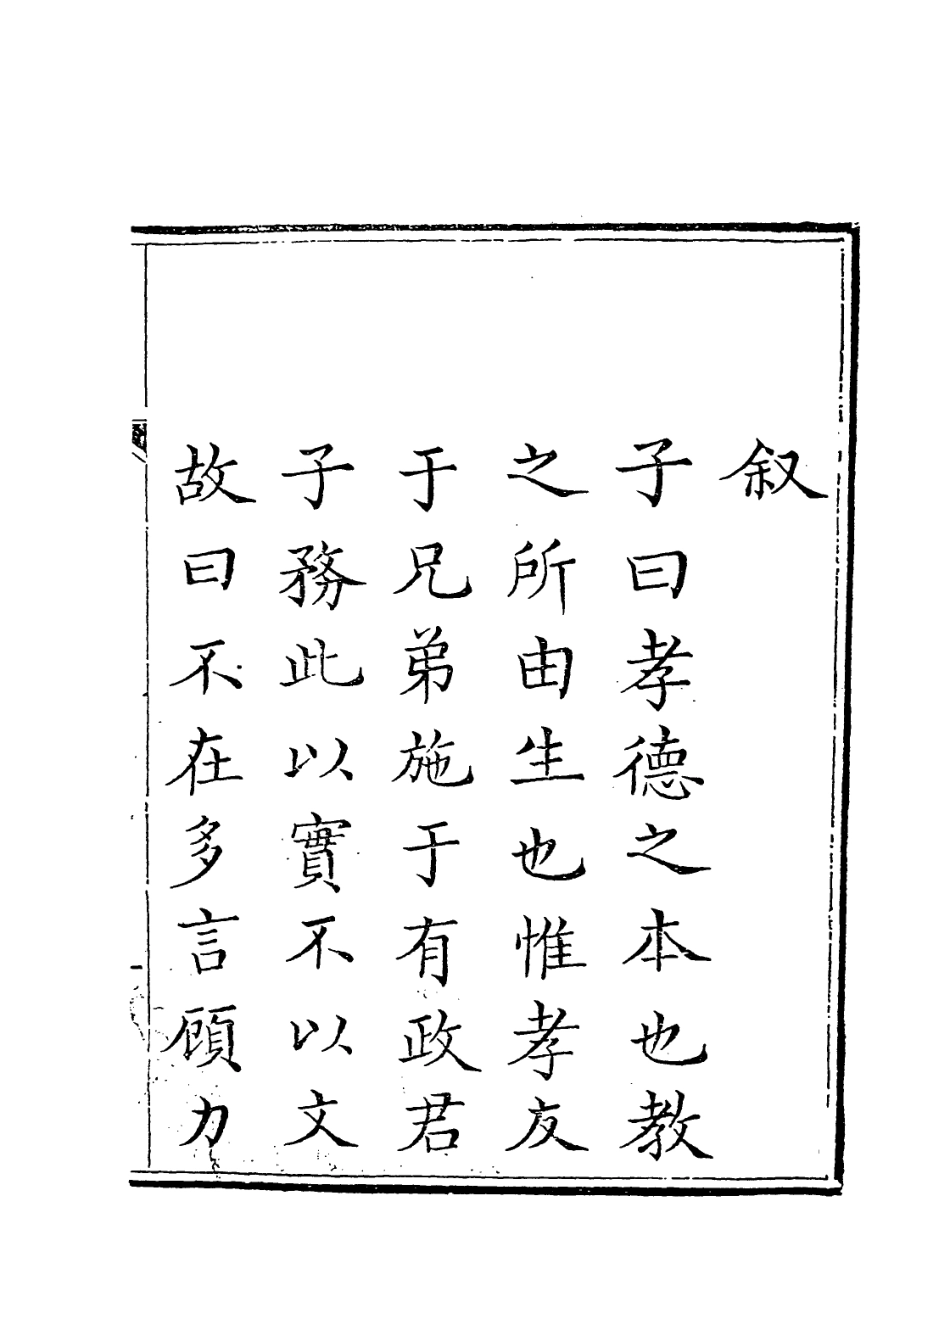 叙
子曰孝德之本也教
之所由生也惟孝友
于兄弟施于有政君
子務此以實不以文
故曰不在多言顧力